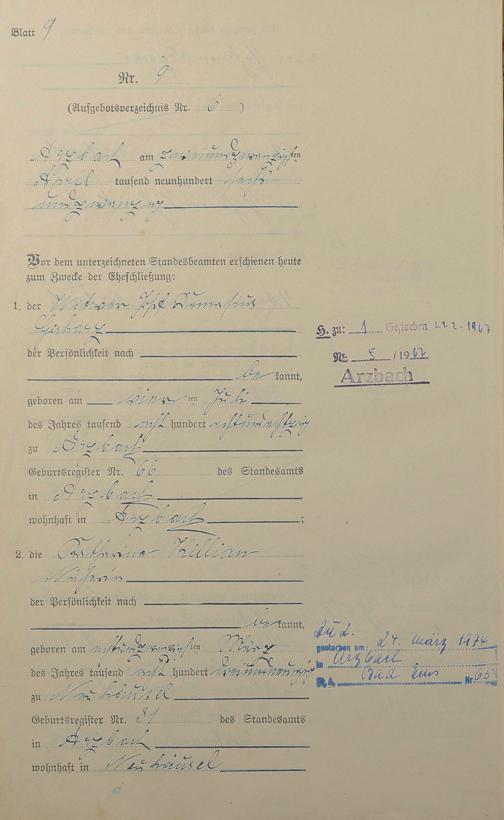 Blatt 9
Nr. 9
(Aufgebotsverzeichnis Nr. 6 )
Arzbach am zweiundzwanzigsten
April tausend neunhundert sechs
undzwanzig
Vor dem unterzeichneten Standesbeamten erschienen heute
zum Zwecke der Eheschließung:
1. der Witwer
der Persönlichkeit nach
be kannt,
geboren am vier ten Juli
des Jahres tausend acht hundert achtundachtzig
zu Arzbach
Geburtsregister Nr. 66 des Standesamts
in Arzbach
wohnhaft in Arzbach ;
H. zu: 1 Gestorben 21.2.1967
Nr. 5 /1967
Arzbach
2. die Catharina Killian
Näherin
der Persönlichkeit nach
be kannt,
geboren am achtundzwanzigsten März
des Jahres tausend acht hundert dreiundneunzig
zu Neuhäusel
Geburtsregister Nr. 31 des Standesamts
in Arzbach
wohnhaft in Neuhäusel
Zu 2.
gestorben am: 24. März 1974
in Arzbach
RA Bad Ems Nr. 65